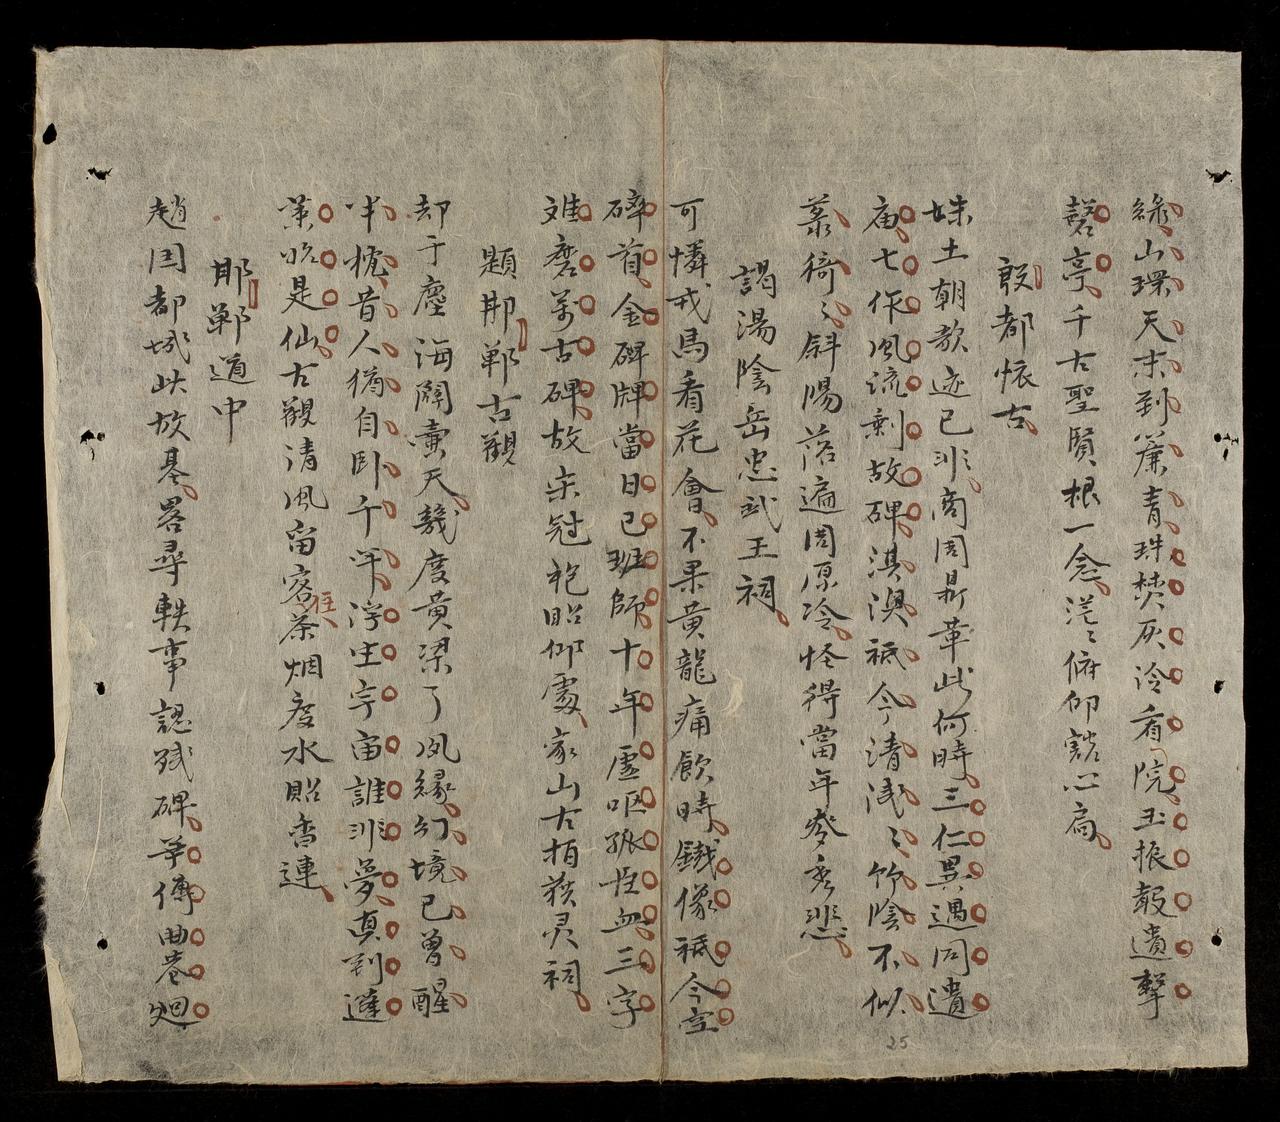 綠山環天末到簾青珠焚灰冷看院玉振㲉遺擊
磬亭千古聖賢根一念茫〻俯仰豁心扃
殷都懷古
妹土朝歌迹已非商周鼎革此何時三仁異遇同遺
庙七作風流剩故碑淇澳祇今清淺〻竹陰不似
菉猗〻斜陽落遍周原冷怪得當年麥秀悲
謁湯陰岳忠武王祠
可憐戎馬看花會不果黃龍痛飲時鐵像祇今空
碎首金碑牌當日已班師十年虛嘔孤臣血三字
难磨萬古碑故宋冠袍昭仰處家山古柏蔟灵祠
題邯鄲古觀
却于塵海闢壷天幾度黃梁了夙緣幻境已曾醒
半枕昔人猶自卧千年浮生宇宙誰非夢真到蓬
萊哈是仙古觀清風留客住茶烟度水貼香連
邯鄲道中
趙国都城此故基畧尋軼事認殘碑爭傳曲巷廻
25